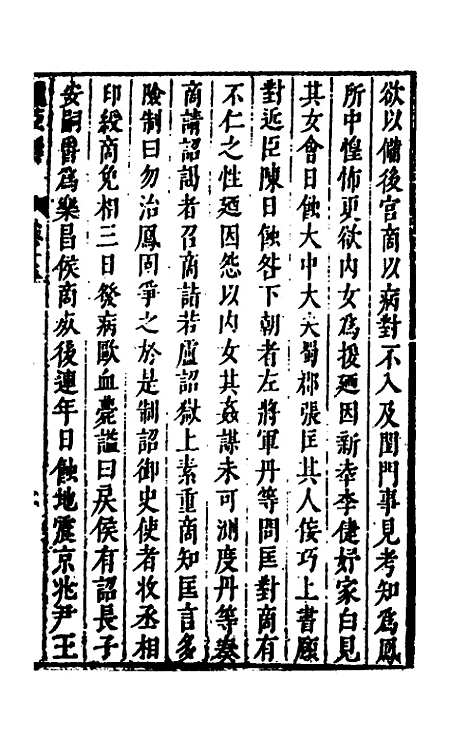 欲以備後宮商以病對不入及閨門事見考知為鳳
所中惶怖更欲內女為援廼因新幸李倢妤家白見
其女會日蝕大中大夫蜀郡張匡其人佞巧上書願
對近臣陳日蝕咎下朝者左將軍丹等問匡對商有
不仁之性廼因怨以內女其姦謀未可測度丹等奏
商請詔謁者召商詣若盧詔獄上素重商知匡言多
險制曰勿治鳳固爭之於是制詔御史使者收丞相
印綬商免相三日發病歐血薨謚曰戾侯有詔長子
安嗣爵為樂昌侯商死後連年日蝕地震京兆尹王